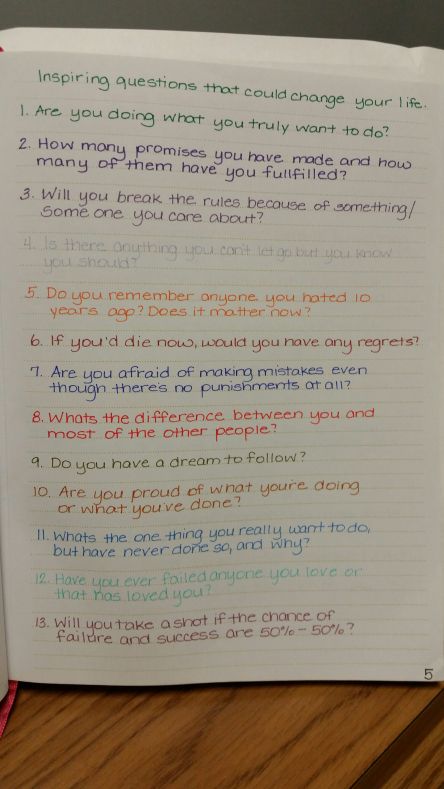 Inspiring questions that could change your life.
1. Are you doing what you truly want to do?
2. How many promises you have made and how
many of them have you fullfilled?
3. Will you break the rules because of something/
some one you care about?
4. Is there anything you can't let go but you know
you should?
5. Do you remember anyone you hated 10
years ago? Does it matter now?
6. If you'd die now, would you have any regrets?
7. Are you afraid of making mistakes even
though there's no punishments at all?
8. Whats the difference between you and
most of the other people?
9. Do you have a dream to follow?
10. Are you proud of what you're doing
or what you've done?
11. Whats the one thing you really want to do,
but have never done so, and why?
12. Have you ever failed anyone you love or
that has loved you?
13. Will you take a shot if the chance of
failure and success are 50% - 50%?
5